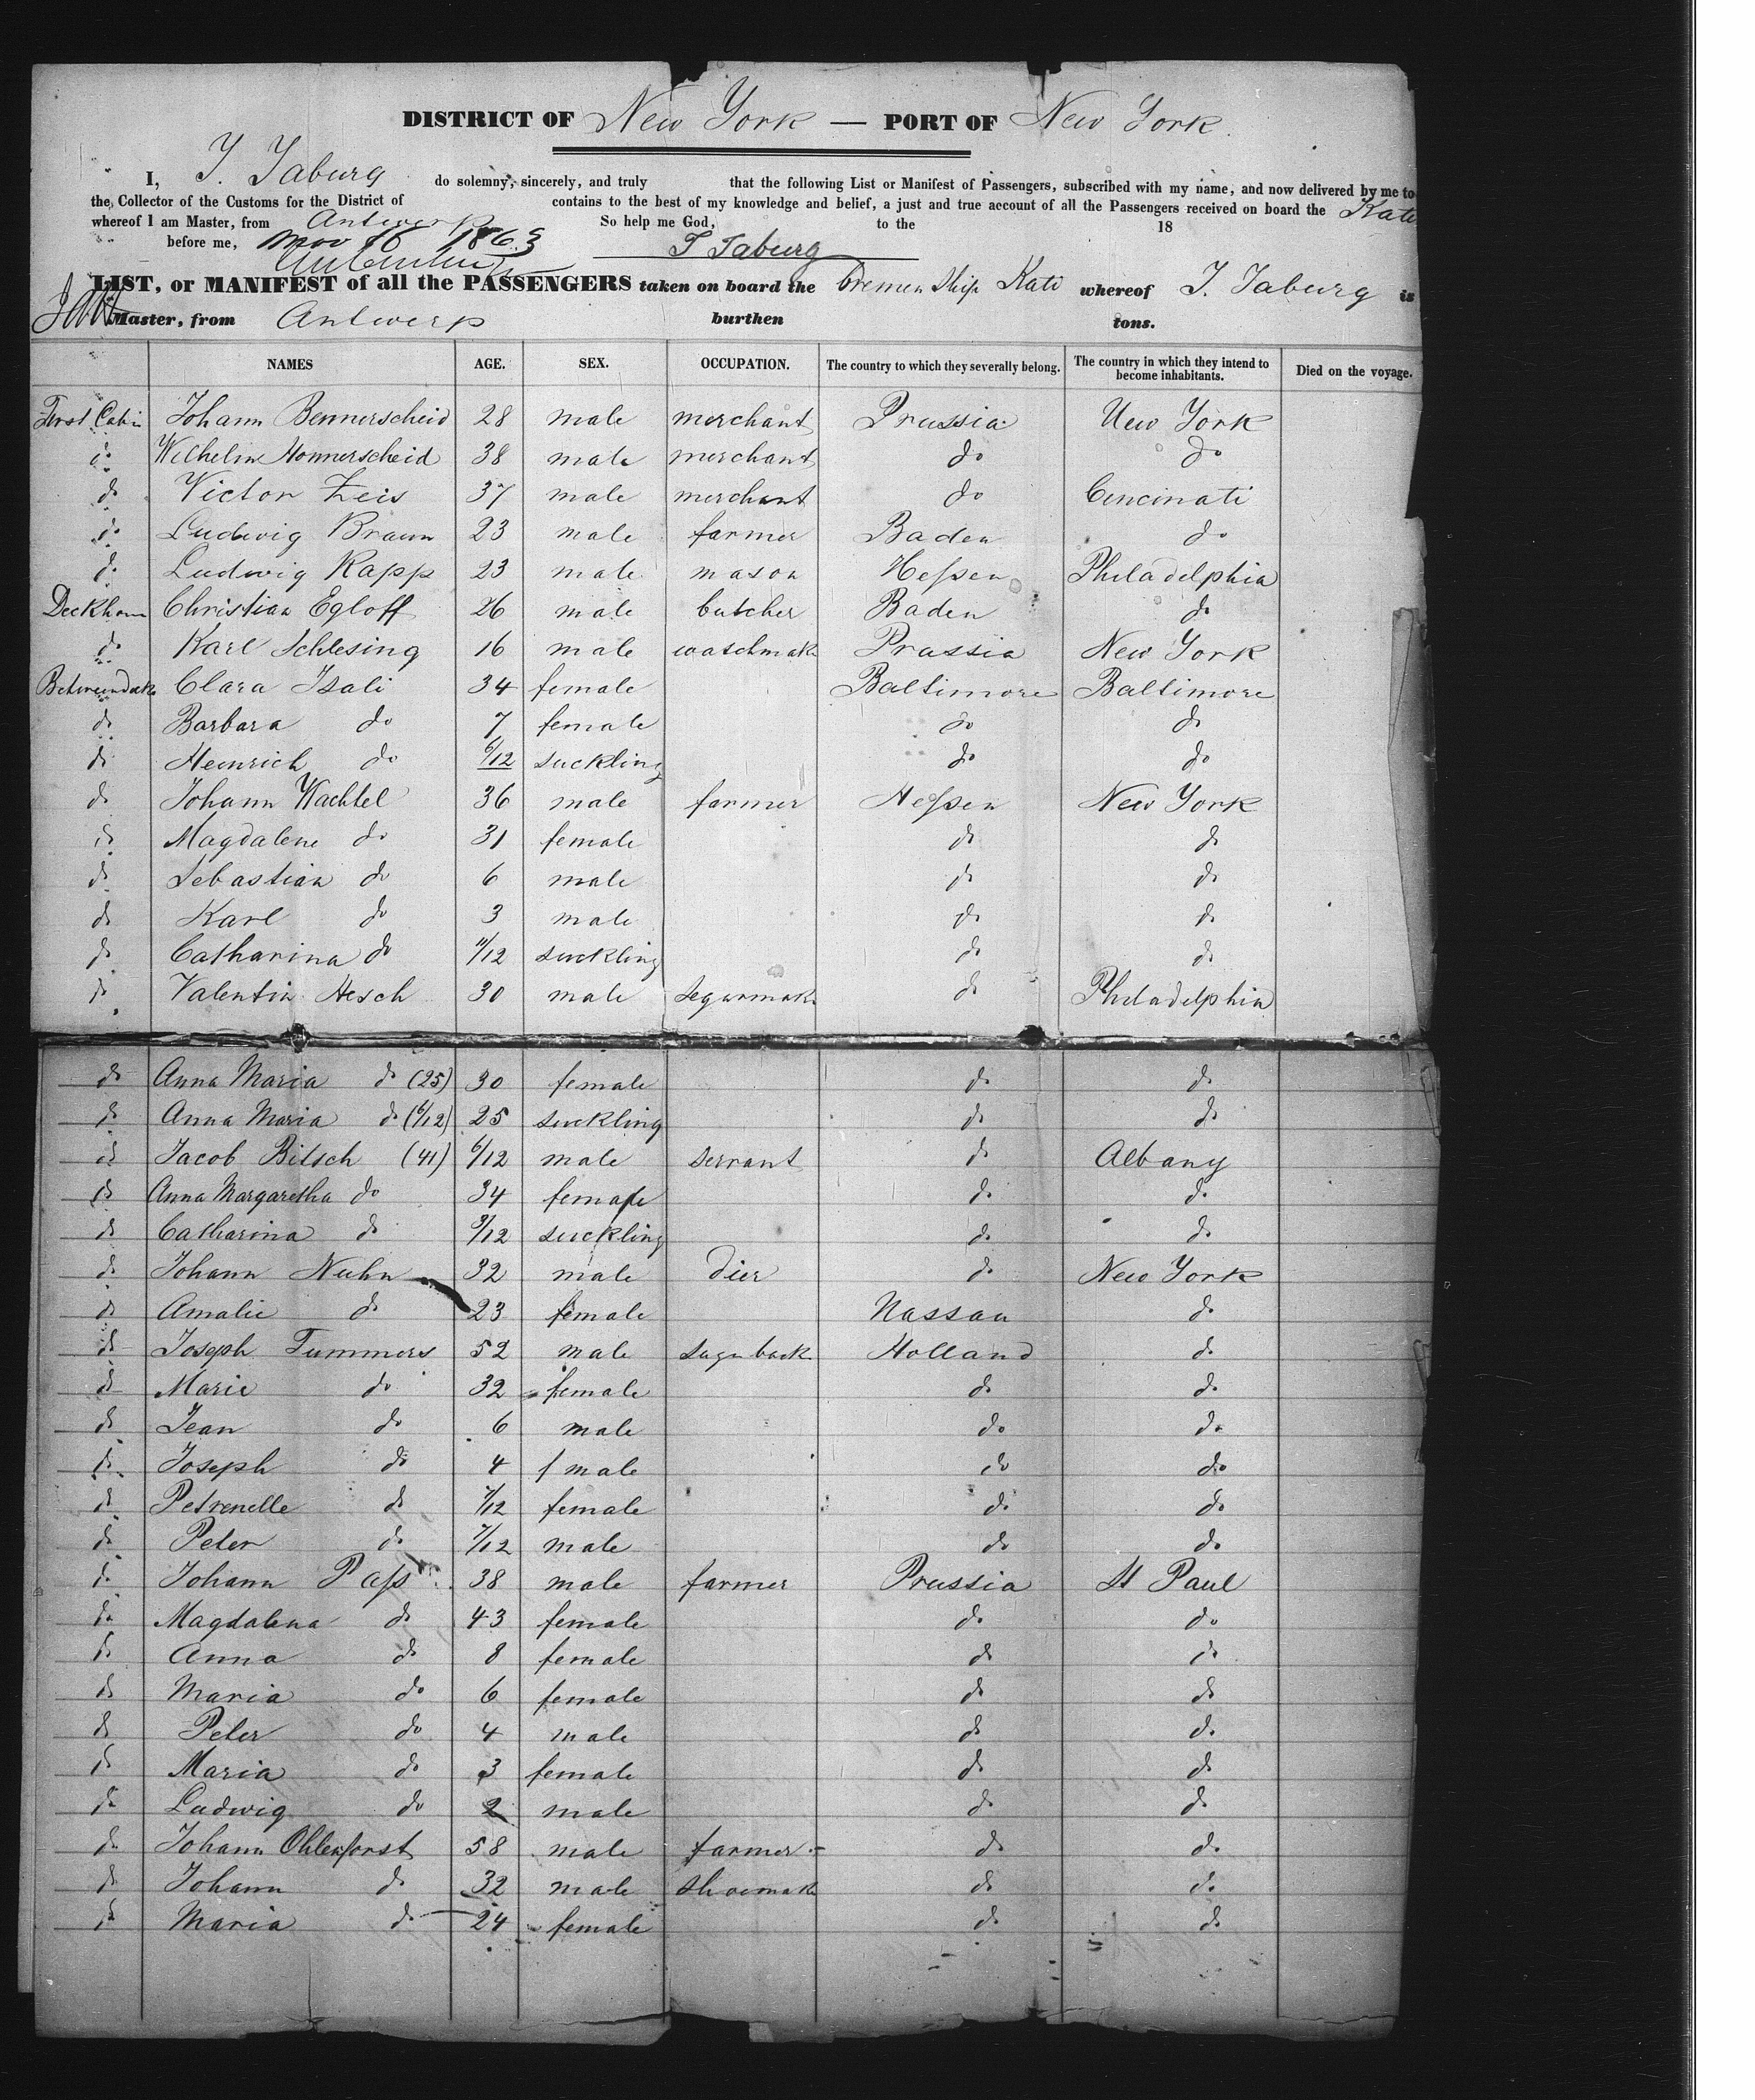 DISTRICT OF New York — PORT OF New York.
I, J. Jaburg do solemny, sincerely, and truly that the following List or Manifest of Passengers, subscribed with my name, and now delivered by me to
the Collector of the Customs for the District of contains to the best of my knowledge and belief, a just and true account of all the Passengers received on board the Kate
whereof I am Master, from Antwerp So help me God, to the 18
before me, Nov 16 1863 J Jaburg
LIST, or MANIFEST of all the PASSENGERS taken on board the bremen Ship Kate whereof J. Jaburg is
Master, from Antwerp burthen tons.
NAMES AGE. SEX. OCCUPATION. The country to which they severally belong. The country in which they intend to become inhabitants. Died on the voyage.
First Cabin Johann Bennerscheid 28 male merchant Prussia New York
do Wilhelm Honnerscheid 38 male merchant do do
do Victor Zeis 37 male merchant do Cencinati
do Ludwig Braun 23 male farmer Baden do
do Ludwig Rapp 23 male mason Hessen Philadelphia
Deckhaus Christian Egloff 26 male butcher Baden do
do Karl Schlesing 16 male watschmak Prussia New York
Betweendek Clara Isali 34 female Baltimore Baltimore
do Barbara do 7 female do do
do Heinrich do 6/12 suckling do do
do Johann Wachtel 36 male farmer Hessen New York
do Magdalene do 31 female do do
do Sebastian do 6 male do do
do Karl do 3 male do do
do Catharina do 11/12 suckling do do
do Valentin Hesch 30 male Segarmak do Philadelphia
do Anna Maria do (25) 30 female do do
do Anna Maria do (6/12) 25 suckling do do
do Jacob Bitsch (41) 6/12 male servant do Albany
do Anna Margaretha do 34 female do do
do Catharina do 9/12 suckling do do
do Johann Nuhn 32 male dier do New York
do Amalie do 23 female Nassau do
do Joseph Tummers 52 male Holland do
do Marie do 32 female do do
do Jean do 6 male do do
do Joseph do 4 male do do
do Petrenelle do 7/12 female do do
do Peter do 7/12 male do do
do Johann Pass 38 male farmer Prussia St Paul
do Magdalena do 43 female do do
do Anna do 8 female do do
do Maria do 6 female do do
do Peter do 4 male do do
do Maria do 3 female do do
do Ludwig do 2 male do do
do Johann Ohlenforst 58 male farmer do do
do Johann do 32 male shoemak do do
do Maria do 24 female do do